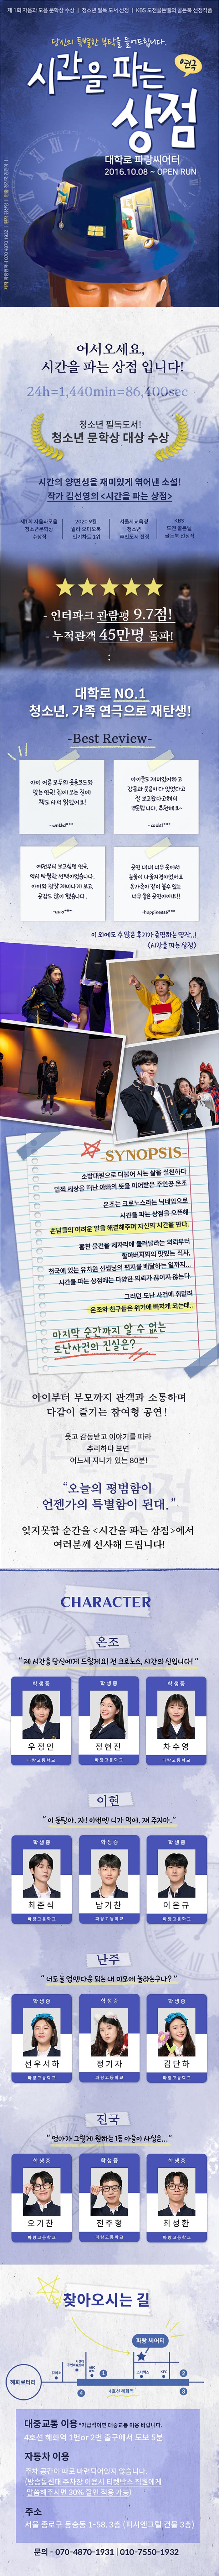 제 1회 자음과 모음 문학상 수상 | 청소년 필독 도서 선정 | KBS 도전골든벨의 골든북 선정작품
당신의 특별한 부탁을 들어드립니다.
시간을 파는
상점
연극
대학로 파랑씨어터
2016.10.08 ~ OPEN RUN
어서오세요,
시간을 파는 상점 입니다!
24h=1,440min=86,400sec
청소년 필독도서!
청소년 문학상 대상 수상
시간의 양면성을 재미있게 엮어낸 소설!
작가 김선영의 <시간을 파는 상점>
제1회 자음과모음
청소년문학상
수상작
2020 9월
밀라 오디오북
인기차트 1위
서울시교육청
청소년
추천도서 선정
KBS
도전 골든벨
골든북 선정작
- 인터파크 관람평 9.7점!
- 누적관객 45만명 돌파!
대학로 NO.1
청소년, 가족 연극으로 재탄생!
-Best Review-
아이 어른 모두의 웃음코드와
맞는 연극! 집에 오는 길에
책도 사서 읽었어요!
아이들도 재미있어하고
감동과 웃음이 다 있었다고
잘 보고왔다고해서
뿌듯합니다. 추천해요~
예전부터 보고싶던 연극,
역시 탁월한 선택이었습니다.
아이와 정말 재미나게 보고,
공감도 많이 했습니다.
공연 내내 너무 웃어서
눈물이 나올지경이었어요
온가족이 같이 볼수 있는
너무 좋은 공연이에요!!
이 외에도 수 많은 후기가 증명하는 명작..!
<시간을 파는 상점>
-SYNOPSIS-
소방대원으로 더불어 사는 삶을 실천하다
일찍 세상을 떠난 아빠의 뜻을 이어받은 주인공 온조
온조는 크로노스라는 닉네임으로
시간을 파는 상점을 오픈해
손님들의 어려운 일을 해결해주며 자신의 시간을 판다.
훔친 물건을 제자리에 돌려달라는 의뢰부터
할아버지와의 맛있는 식사,
천국에 있는 유치원 선생님의 편지를 배달하는 일까지...
시간을 파는 상점에는 다양한 의뢰가 끊이지 않는다.
그러던 도난 사건에 휘말려
온조와 친구들은 위기에 빠지게 되는데..
마지막 순간까지 알 수 없는
도난사건의 진실은?
아이부터 부모까지 관객과 소통하며
다같이 즐기는 참여형 공연!
웃고 감동받고 이야기를 따라
추리하다 보면
어느새 지나가 있는 80분!
“오늘의 평범함이
언젠가의 특별함이 된대.”
잊지못할 순간을 <시간을 파는 상점>에서
여러분께 선사해 드립니다!
CHARACTER
온조
“제 시간을 당신에게 드릴게요! 전 크로노스, 시간의 신입니다!”
학생증
학생증
학생증
우정인
정현진
차수영
파랑고등학교
파랑고등학교
파랑고등학교
이현
“이 돈팁아, 자! 이번엔 니가 먹어. 재 주지마.”
학생증
학생증
학생증
최준식
남기찬
이은규
파랑고등학교
파랑고등학교
파랑고등학교
난주
학생증
학생증
학생증
선우서하
정기자
김단하
파랑고등학교
파랑고등학교
파랑고등학교
진국
“엄마가 그렇게 원하는 1등 아들이 사실은...”
학생증
학생증
학생증
오기찬
전주형
최성환
파랑고등학교
파랑고등학교
파랑고등학교
찾아오시는 길
파랑 씨어터
혜화로터리
4호선 혜화역
1
2
3
4
대중교통 이용 *가급적이면 대중교통 이용 바랍니다.
4호선 혜화역 1번or 2번 출구에서 도보 5분
자동차 이용
주차 공간이 따로 마련되어있지 않습니다.
(방송통신대 주차장 이용시 티켓박스 직원에게
말씀해주시면 30% 할인 적용 가능)
주소
서울 종로구 동숭동 1-58, 3층 (피시앤그릴 건물 3층)
문의 - 070-4870-1931 | 010-7550-1932